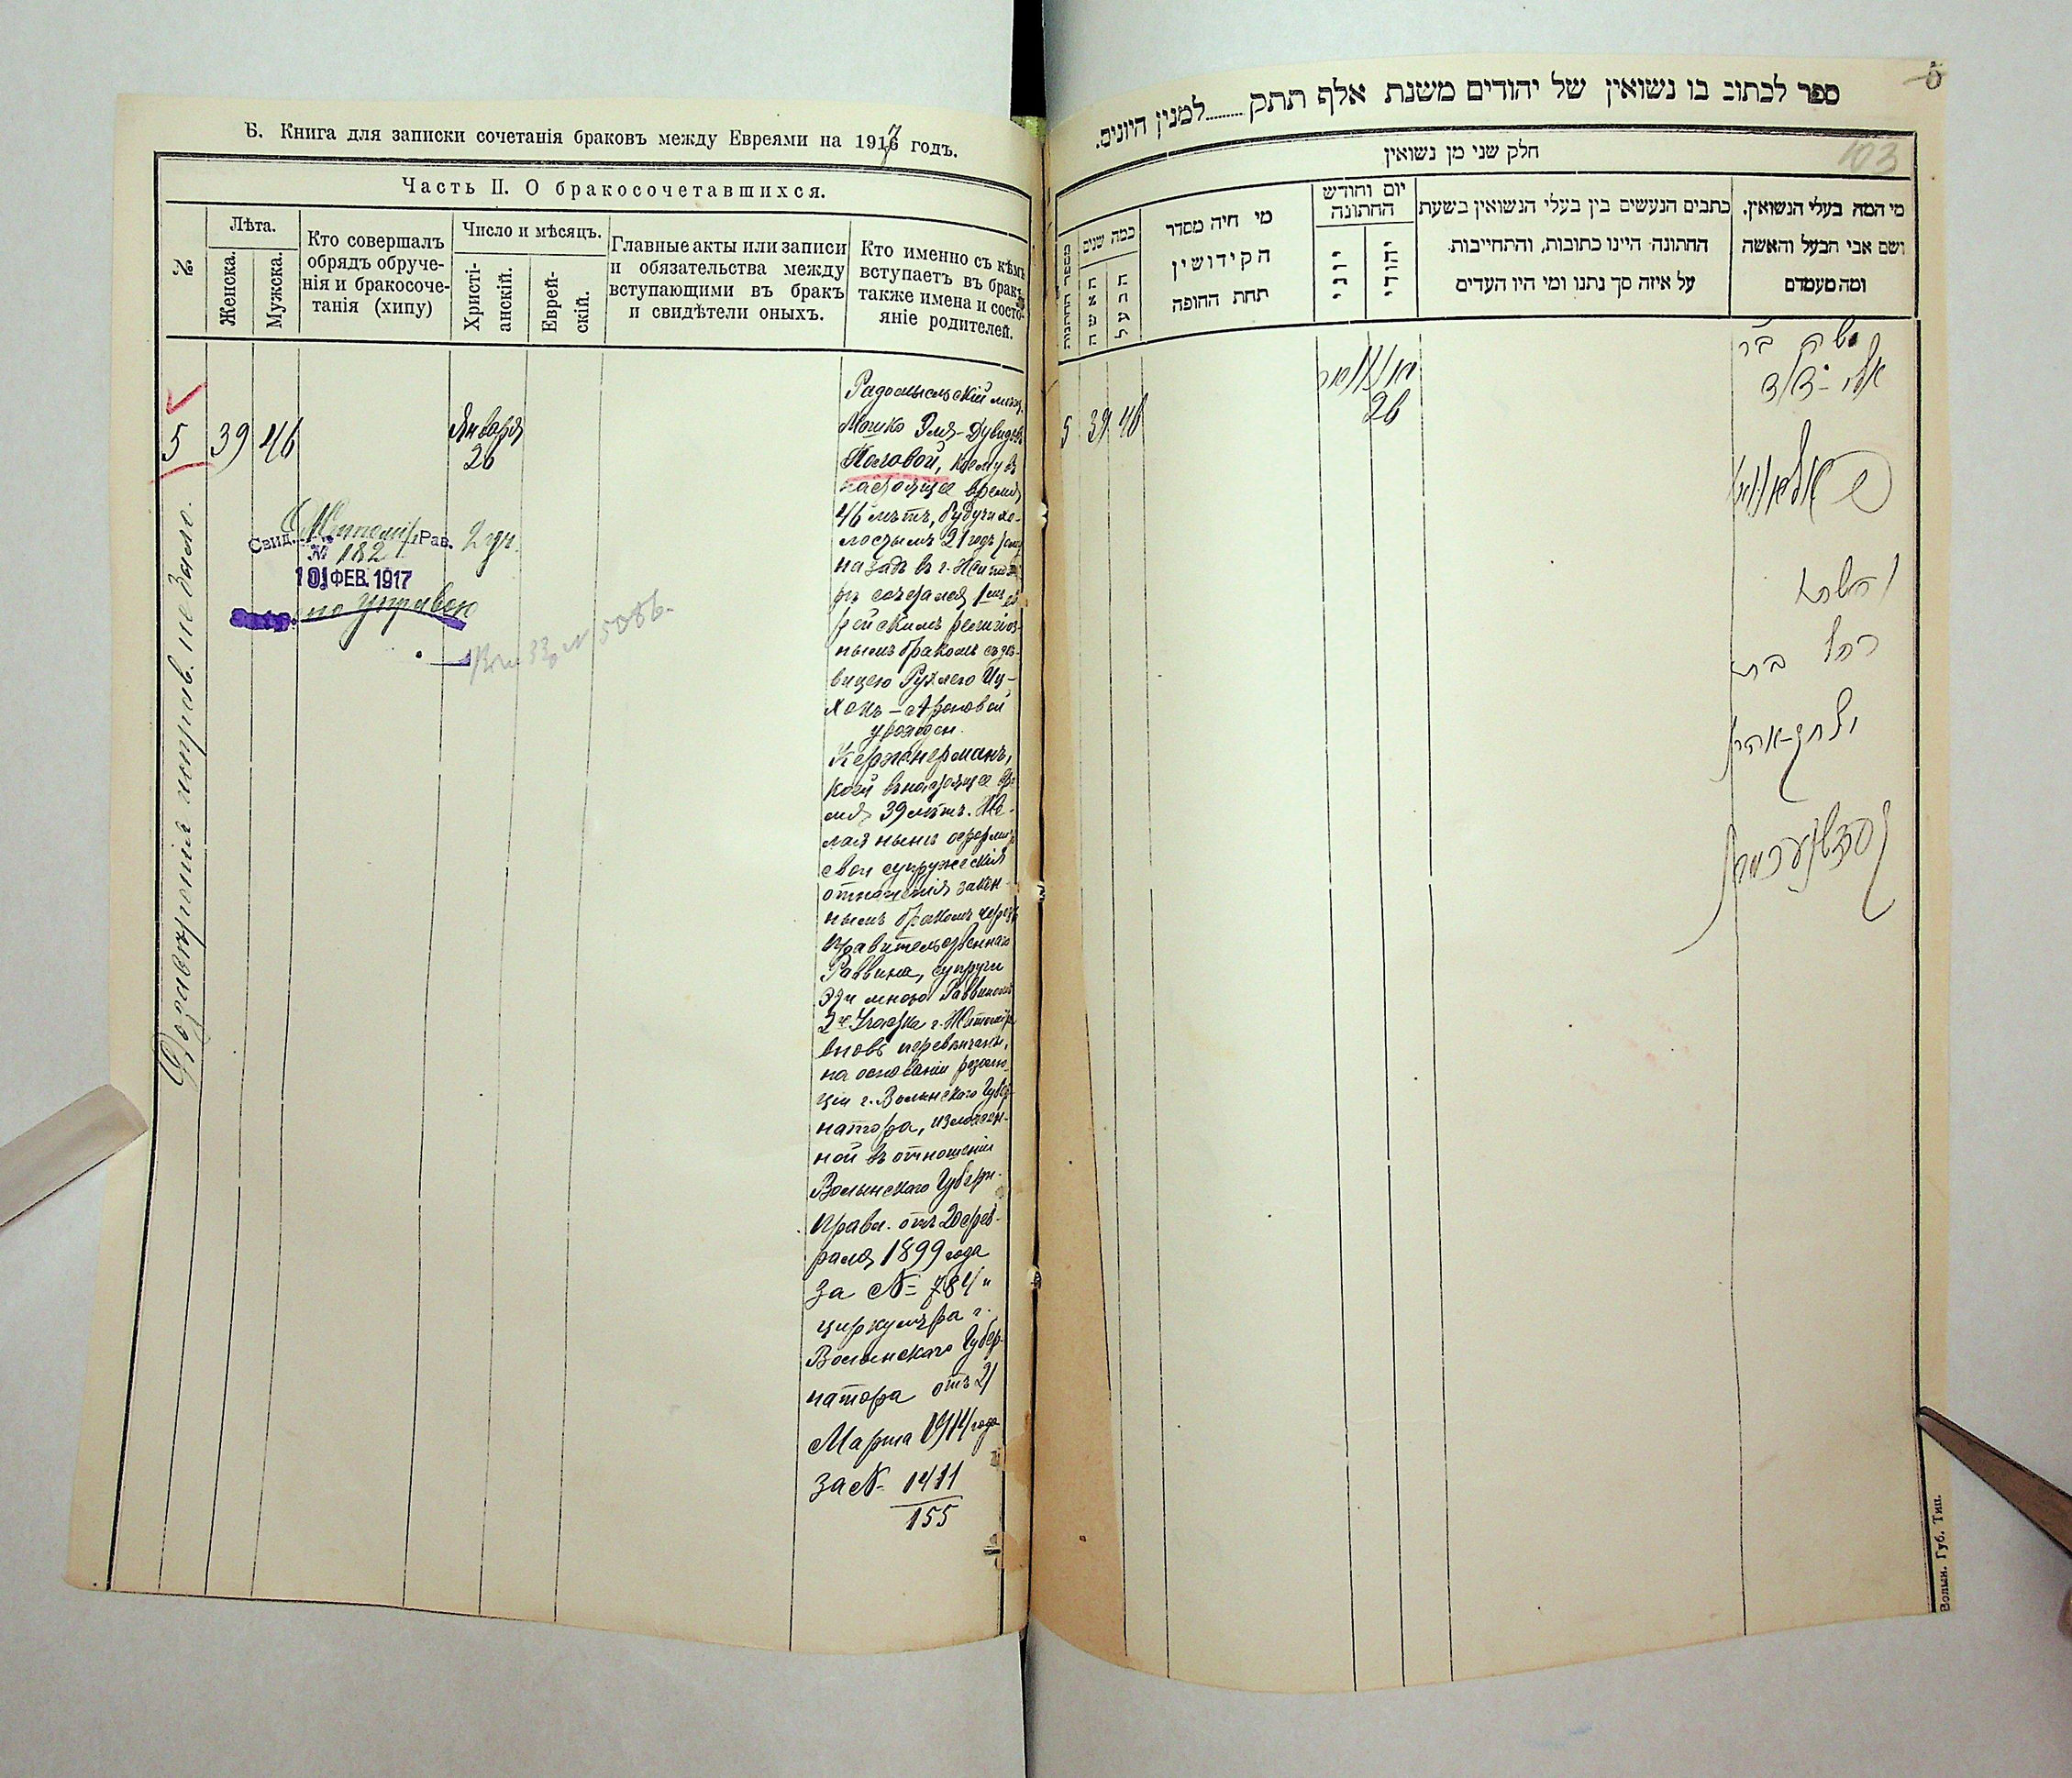 Б. Книга для записки сочетанія браковъ между Евреями на 1917 годъ.
Часть II. О бракосочетавшихся.
№
Лѣта.
Женска.
Мужска.
Кто совершалъ
обрядъ обруче-
нія и бракосоче-
танія (хипу)
Число и мѣсяцъ.
Христі-
анскій.
Еврей-
скій.
Главные акты или записи
и обязательства между
вступающими въ бракъ
и свидѣтели оныхъ.
Кто именно съ кѣмъ
вступаетъ въ бракъ,
также имена и состо-
яніе родителей.
5
39
46
Января
26
Радомысльскій мѣщ.
Мошко Эля-Дувидовъ
Половой, коему въ
настоящее время
46 лѣтъ, будучи хо-
лостымъ 21 годъ тому
назадъ въ г. Житомі
рѣ сочетался
рейскимъ религіоз-
нымъ бракомъ съ дѣ-
вицею Рухлею Иц-
хокъ-Ароновой
урожден.
Кержнерманъ,
коей въ настоящее вре
мя 39 лѣтъ. Же-
лая нынѣ оформить
свои супружескія
отношенія закон-
нымъ бракомъ черезъ
Правительственнаго
Раввина, супруги
эти мною Раввиномъ
2го Участка г. Житоміра
вновь перевѣнчаны,
на основаніи резолю-
ціи г. Волынскаго Губер-
натора, изложен-
ной въ отношеніи
Волынскаго Губерн.
Правл. отъ 20 фев-
раля 1899 года
за № 784 и
циркуляра г.
Волынскаго Губер-
натора отъ 21
Марта 1914 года
за № 1411
155
Свид. Житомір. Рав. 2 уч.
№ 182
10 ФЕВ. 1917
№ 5086.
ספר לכתוב בו נשואין של יהודים משנת אלף תתק.........למנין היונים.
5
103
חלק שני מן נשואין
מספר החתונות
כמה שנים
האשה
הבעל
מי היה מסדר
הקידושין
תחת החופה
יום וחודש
החתונה
יוני
יהודי
כתבים הנעשים בין בעלי הנשואין בשעת
החתונה היינו כתובות, והתחייבות
על איזה סך נתנו ומי היו העדים
מי המה בעלי הנשואין.
ושם אבי הבעל והאשה
ומה מעמדם
5
39
46
26
רחל בת
יצחק-אהרן
קערזשנערמאן
Волын. Губ. Тип.